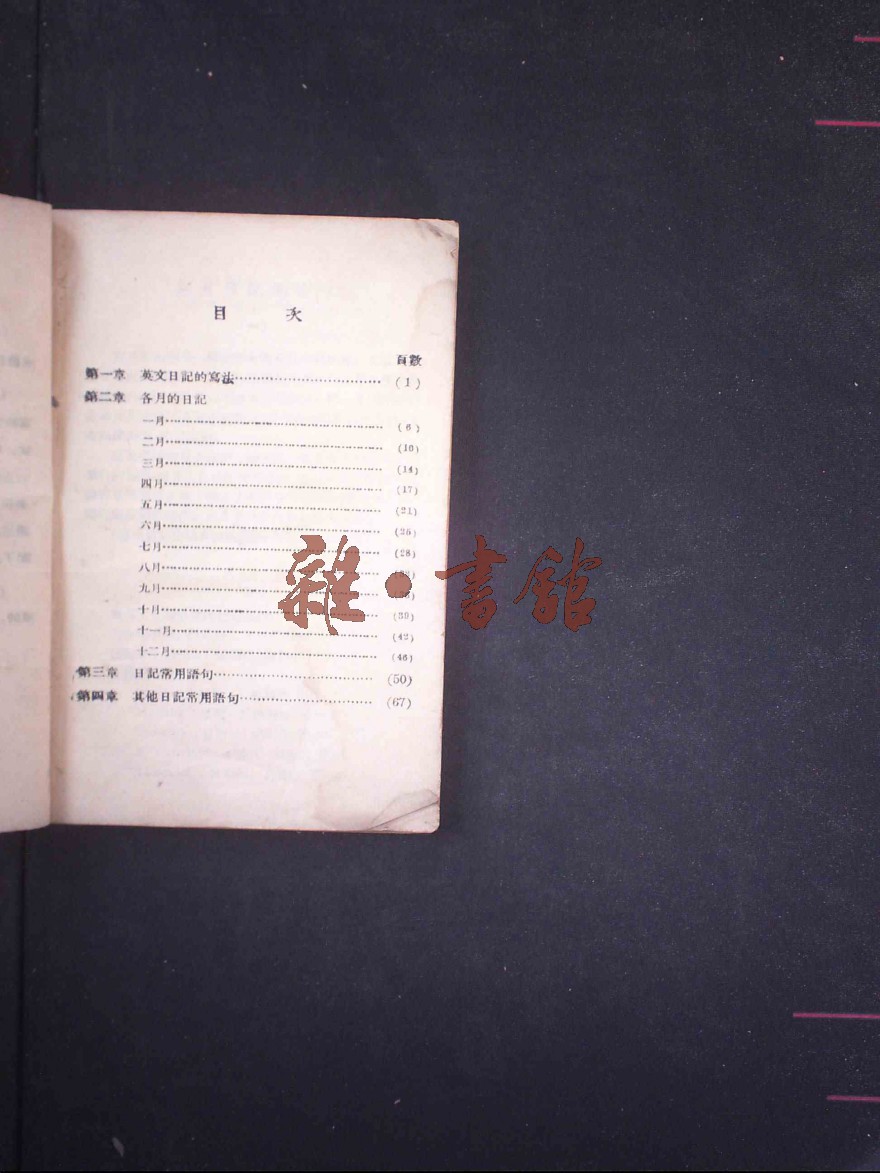 目 次
頁數
第一章 英文日記的寫法…………(1)
第二章 各月的日記
一月…………(6)
二月…………(10)
三月…………(14)
四月…………(17)
五月…………(21)
六月…………(25)
七月…………(28)
八月…………
九月…………
十月…………(39)
十一月…………(42)
十二月…………(46)
第三章 日記常用語句…………(50)
第四章 其他日記常用語句…………(67)
雜·書館